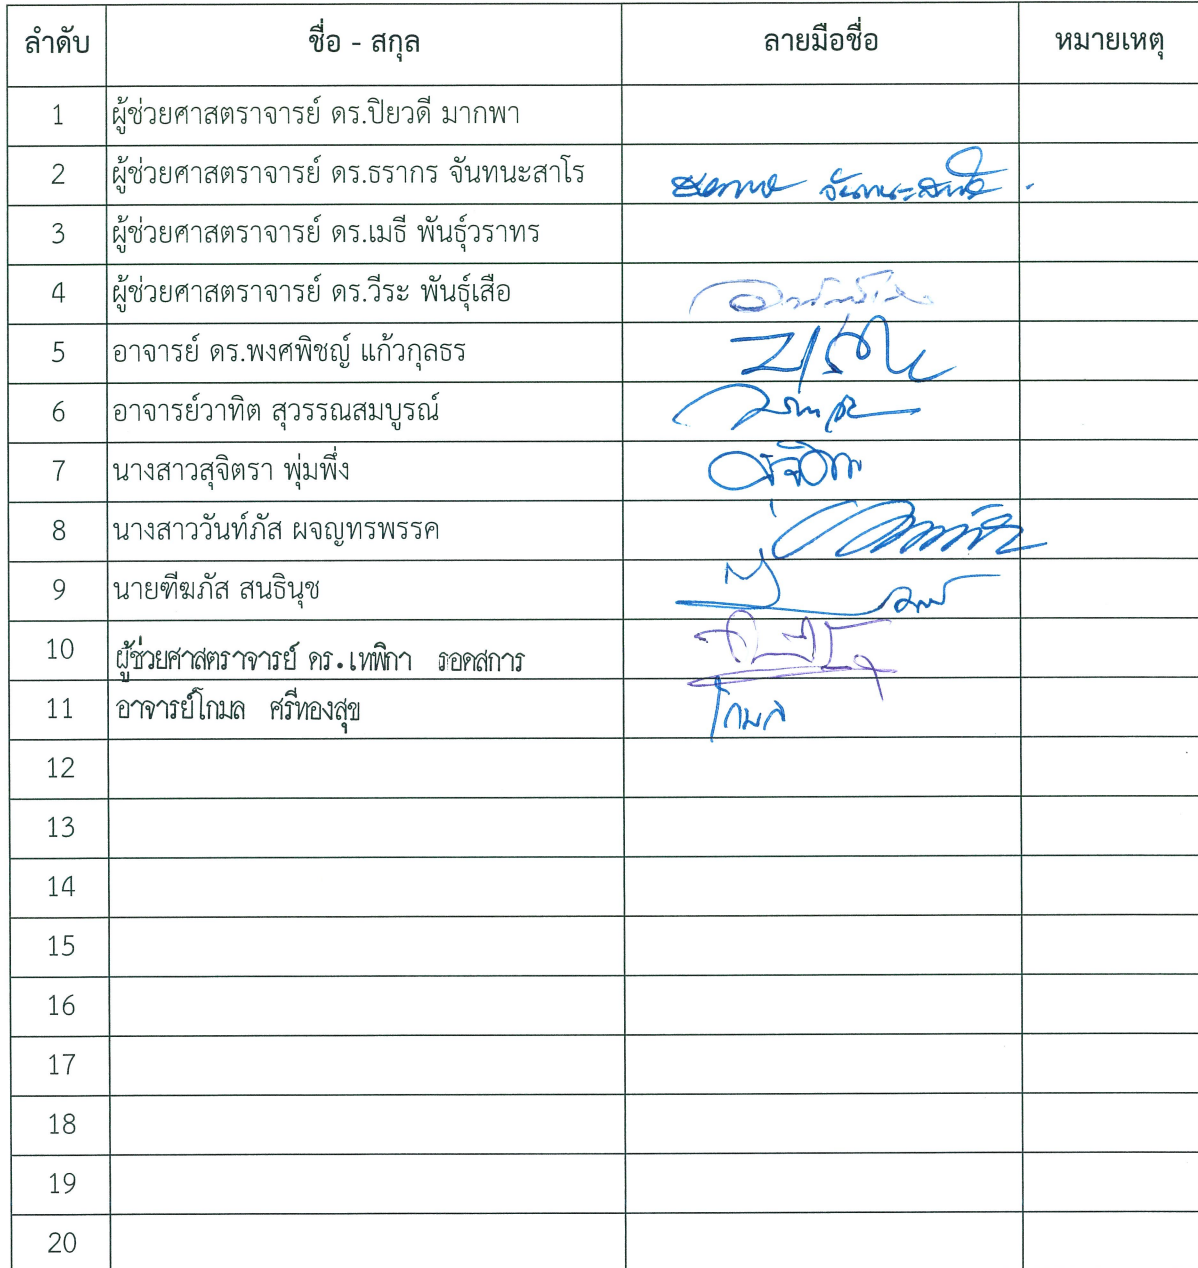 ลำดับ ชื่อ - สกุล ลายมือชื่อ หมายเหตุ
1 ผู้ช่วยศาสตราจารย์ ดร.ปิยวดี มากพา
2 ผู้ช่วยศาสตราจารย์ ดร.ธรากร จันทนะสาโร จันทนะสาโร
3 ผู้ช่วยศาสตราจารย์ ดร.เมธี พันธุ์วราทร
4 ผู้ช่วยศาสตราจารย์ ดร.วีระ พันธุ์เสือ
5 อาจารย์ ดร.พงศพิชญ์ แก้วกุลธร
6 อาจารย์วาทิต สุวรรณสมบูรณ์
7 นางสาวสุจิตรา พุ่มพึ่ง สุจิตรา
8 นางสาววันท์ภัส ผจญทรพรรค
9 นายฑีฆภัส สนธินุช
10 ผู้ช่วยศาสตราจารย์ ดร.เทพิกา รอดสการ
11 อาจารย์โกมล ศรีทองสุข โกมล
12
13
14
15
16
17
18
19
20